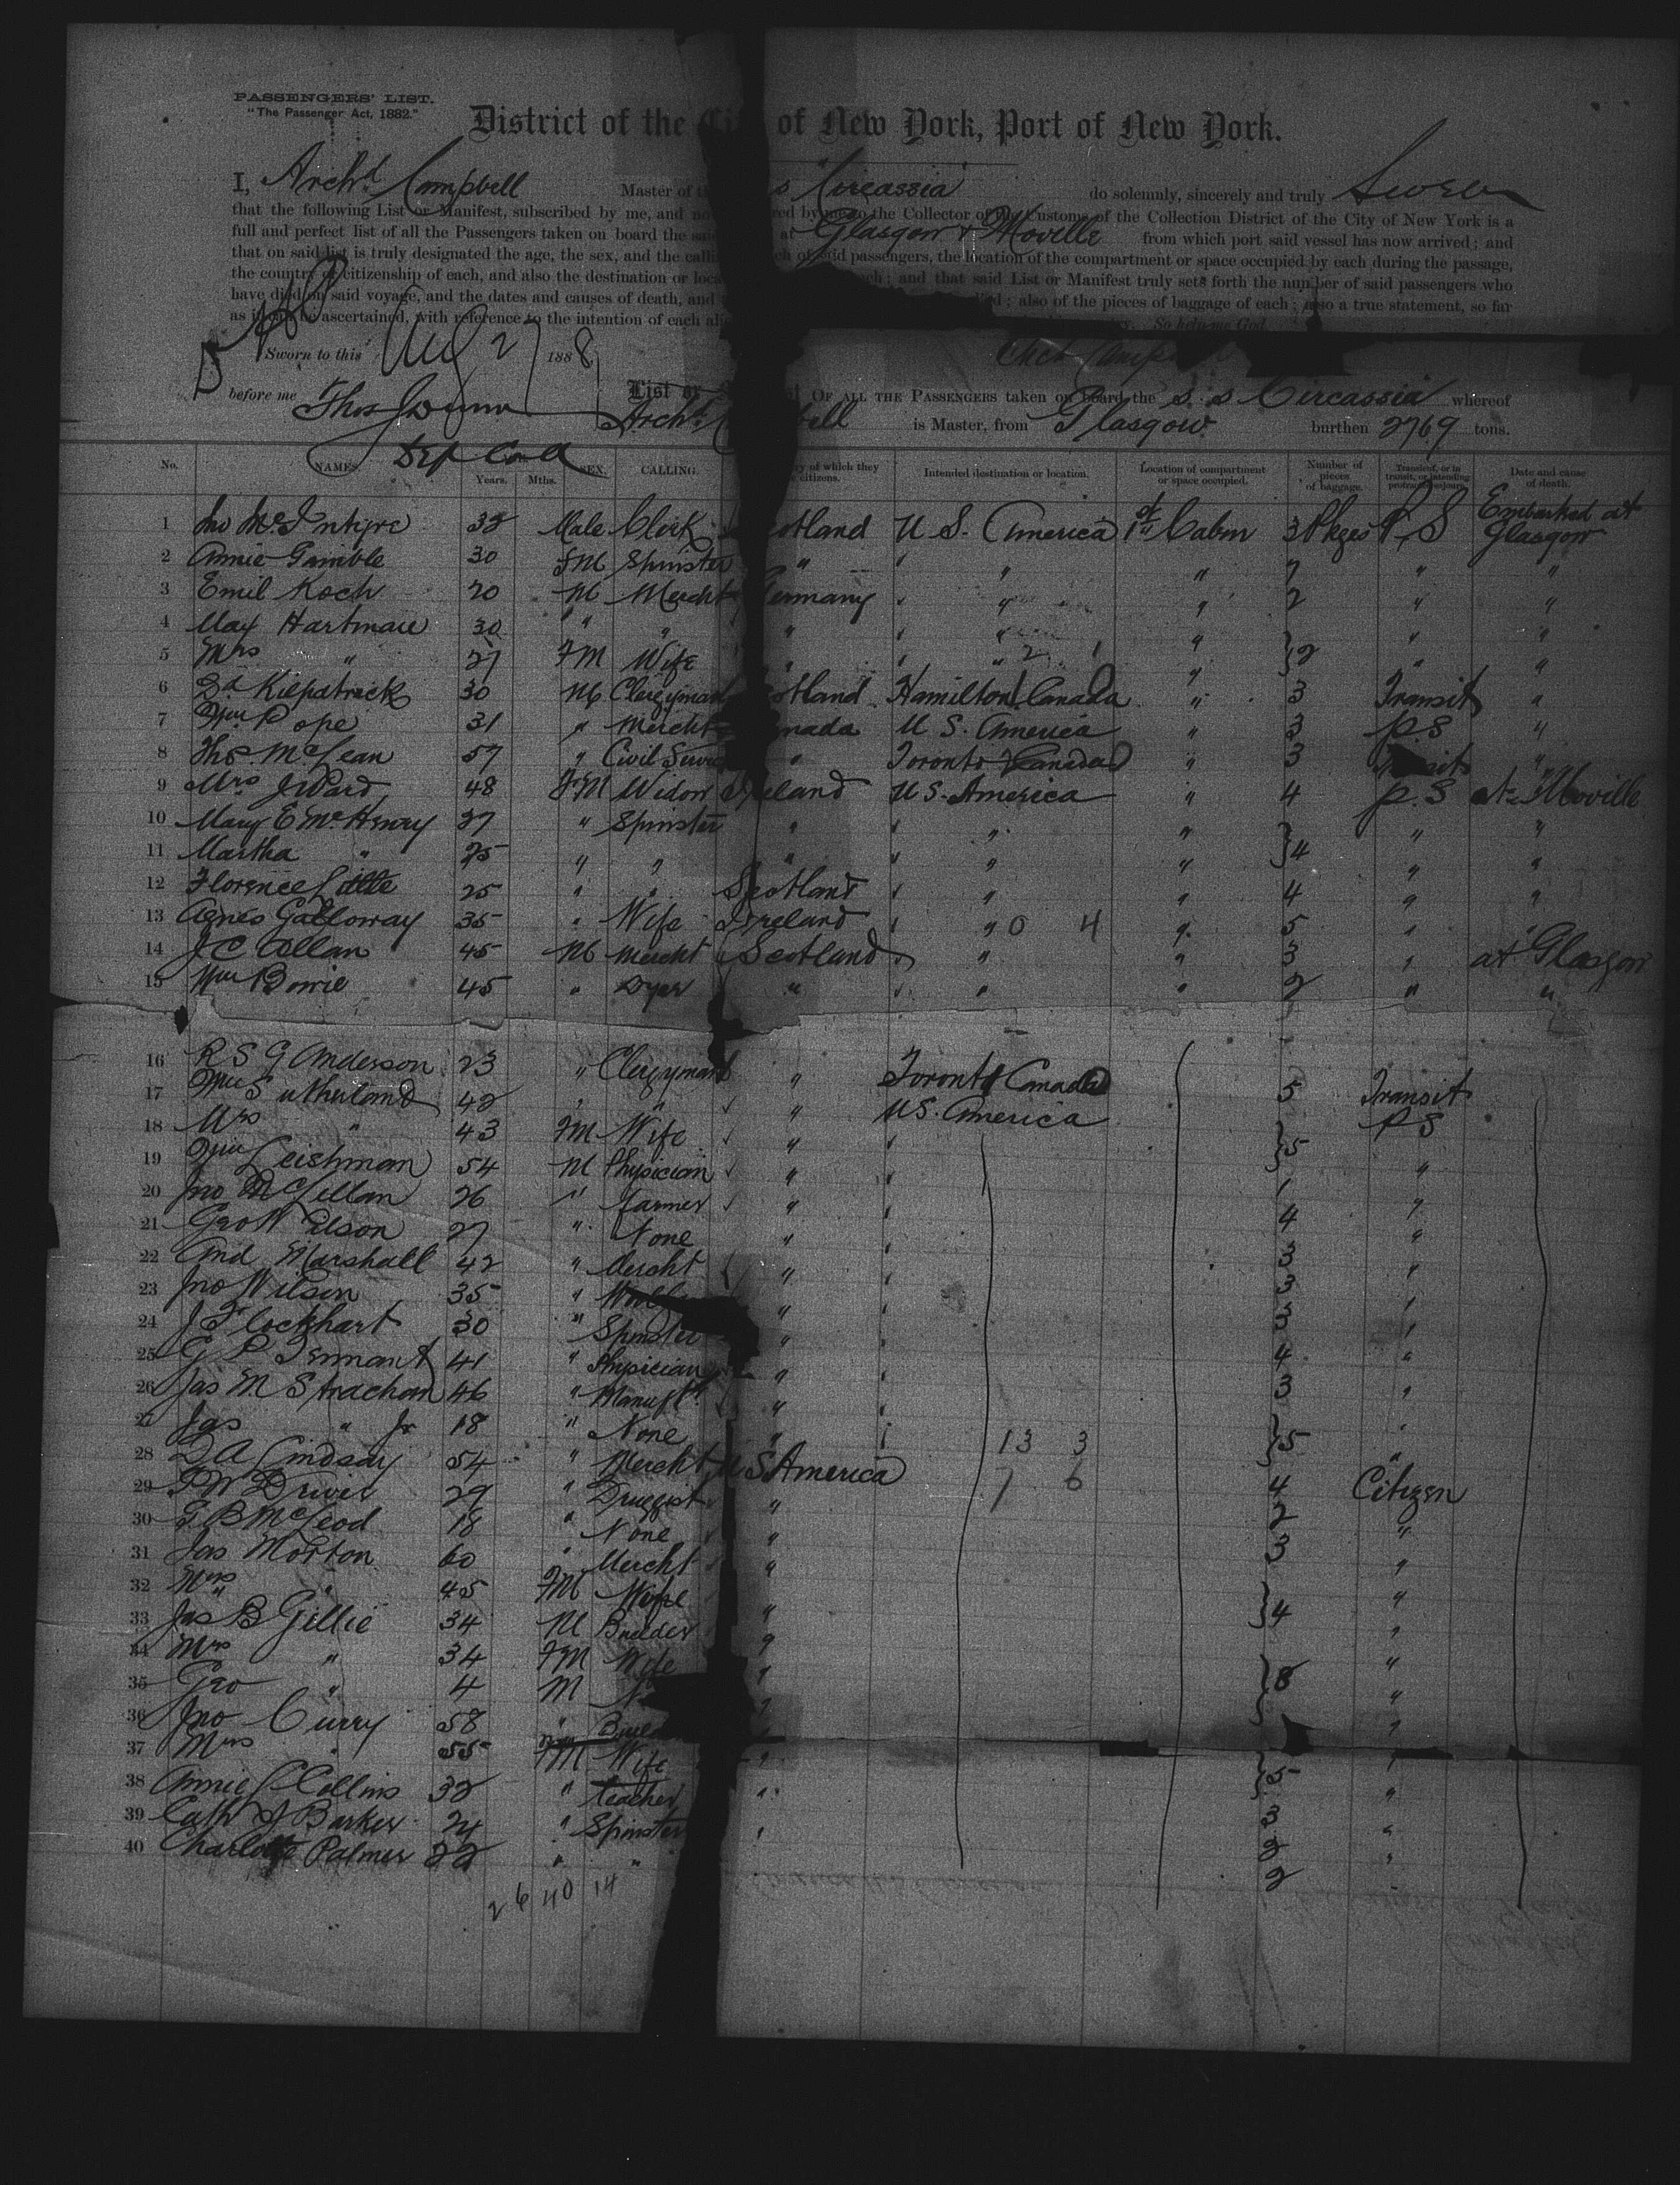 PASSENGERS' LIST.
"The Passenger Act, 1882."
District of the Ci of New York, Port of New York.
I, Archd Campbell Master of t s Circassia do solemnly, sincerely and truly Swear
that the following List or Manifest, subscribed by me, and no red by me to the Collector of the Customs of the Collection District of the City of New York is a
full and perfect list of all the Passengers taken on board the sa at Glasgow & Moville from which port said vessel has now arrived; and
that on said list is truly designated the age, the sex, and the calli ch of said passengers, the location of the compartment or space occupied by each during the passage,
the country of citizenship of each, and also the destination or loca ch; and that said List or Manifest truly sets forth the number of said passengers who
have died on said voyage, and the dates and causes of death, and died; also of the pieces of baggage of each; also a true statement, so far
as it can be ascertained, with reference to the intention of each ali So help me God.
Sworn to this Aug 27 1888
before me Thos J Dunn
Dep Coll
List or OF ALL THE PASSENGERS taken on board the S. S Circassia whereof
Archd C bell is Master, from Glasgow burthen 2769 tons.
No. NAMES. Years. Mths. SEX. CALLING. y of which they citizens. Intended destination or location. Location of compartment or space occupied. Number of pieces of baggage. Transient, or in transit, or intending protracted sojourn. Date and cause of death.
1 Jno McIntyre 38 Male Clerk otland U S. America 1st Cabin 3 Pkges P, S Embarked at Glasgow
2 Annie Gamble 30 FM Spinster " " " 7 " "
3 Emil Koch 20 M Mercht Germany " " 2 " "
4 Max Hartmare 30 " " " " " " "
5 Mrs " 27 FM Wife " " " }2 " "
6 Dd Kilpatrick 30 M Clergyman otland Hamilton Canada " 3 Transit "
7 Wm Pope 31 " Mercht nada U S. America " 3 P.S "
8 Thos McLean 57 " Civil Serv " Toronto Canada " 3 "
9 Mrs J Ward 48 FM Widow Ireland U S. America " 4 P.S at Moville
10 Mary E McHenry 27 " Spinster " " " " "
11 Martha " 25 " " " " " }4 " "
12 Florence Little 25 " " Scotland " " 4 " "
13 Agnes Galloway 35 " Wife Ireland " 0 4 " 5 " "
14 J C Allan 45 M Mercht Scotland " " 3 " at Glasgow
15 Wm Bowie 45 " Dyer " " " 2 " "
16 R S G Anderson 23 " Clergyman " Toronto Canada 5 Transit
17 Wm Sutherland 42 " " " U S. America P S
18 Mrs " 43 FM Wife " }5
19 Wm Leishman 54 M Physician " 1 "
20 Jno McLellan 26 " farmer " 4 "
21 Geo Wilson 27 " None " 3 "
22 And Marshall 42 " Mercht " 3 "
23 Jno Wilson 35 " " 3 "
24 J F Lockhart 30 " Spinster " 4 "
25 G P Tennant 41 " Physician " 3 "
26 Jas M Strachan 46 " Manuftr "
27 Jas " Jr 18 " None " 13 3 }5 "
28 D A Lindsay 54 " Mercht U S America 7 6 4 Citizen
29 F W Driver 29 " Druggist " 2 "
30 G B McLeod 18 " None " 3 "
31 Jas Morton 60 " Mercht " "
32 Mrs " 45 FM Wife " }4 "
33 Jas B Gillie 34 M Builder " "
34 Mrs " 34 FM Wife " }8 "
35 Geo " 4 M " "
36 Jno Curry 58 " Buil " "
37 Mrs " 55 FM Wife " }5 "
38 Annie L Collins 32 " teacher " 3 "
39 Cath J Barker 24 " Spinster " 2 "
40 Charlotte Palmer 22 " " 2
26 40 14